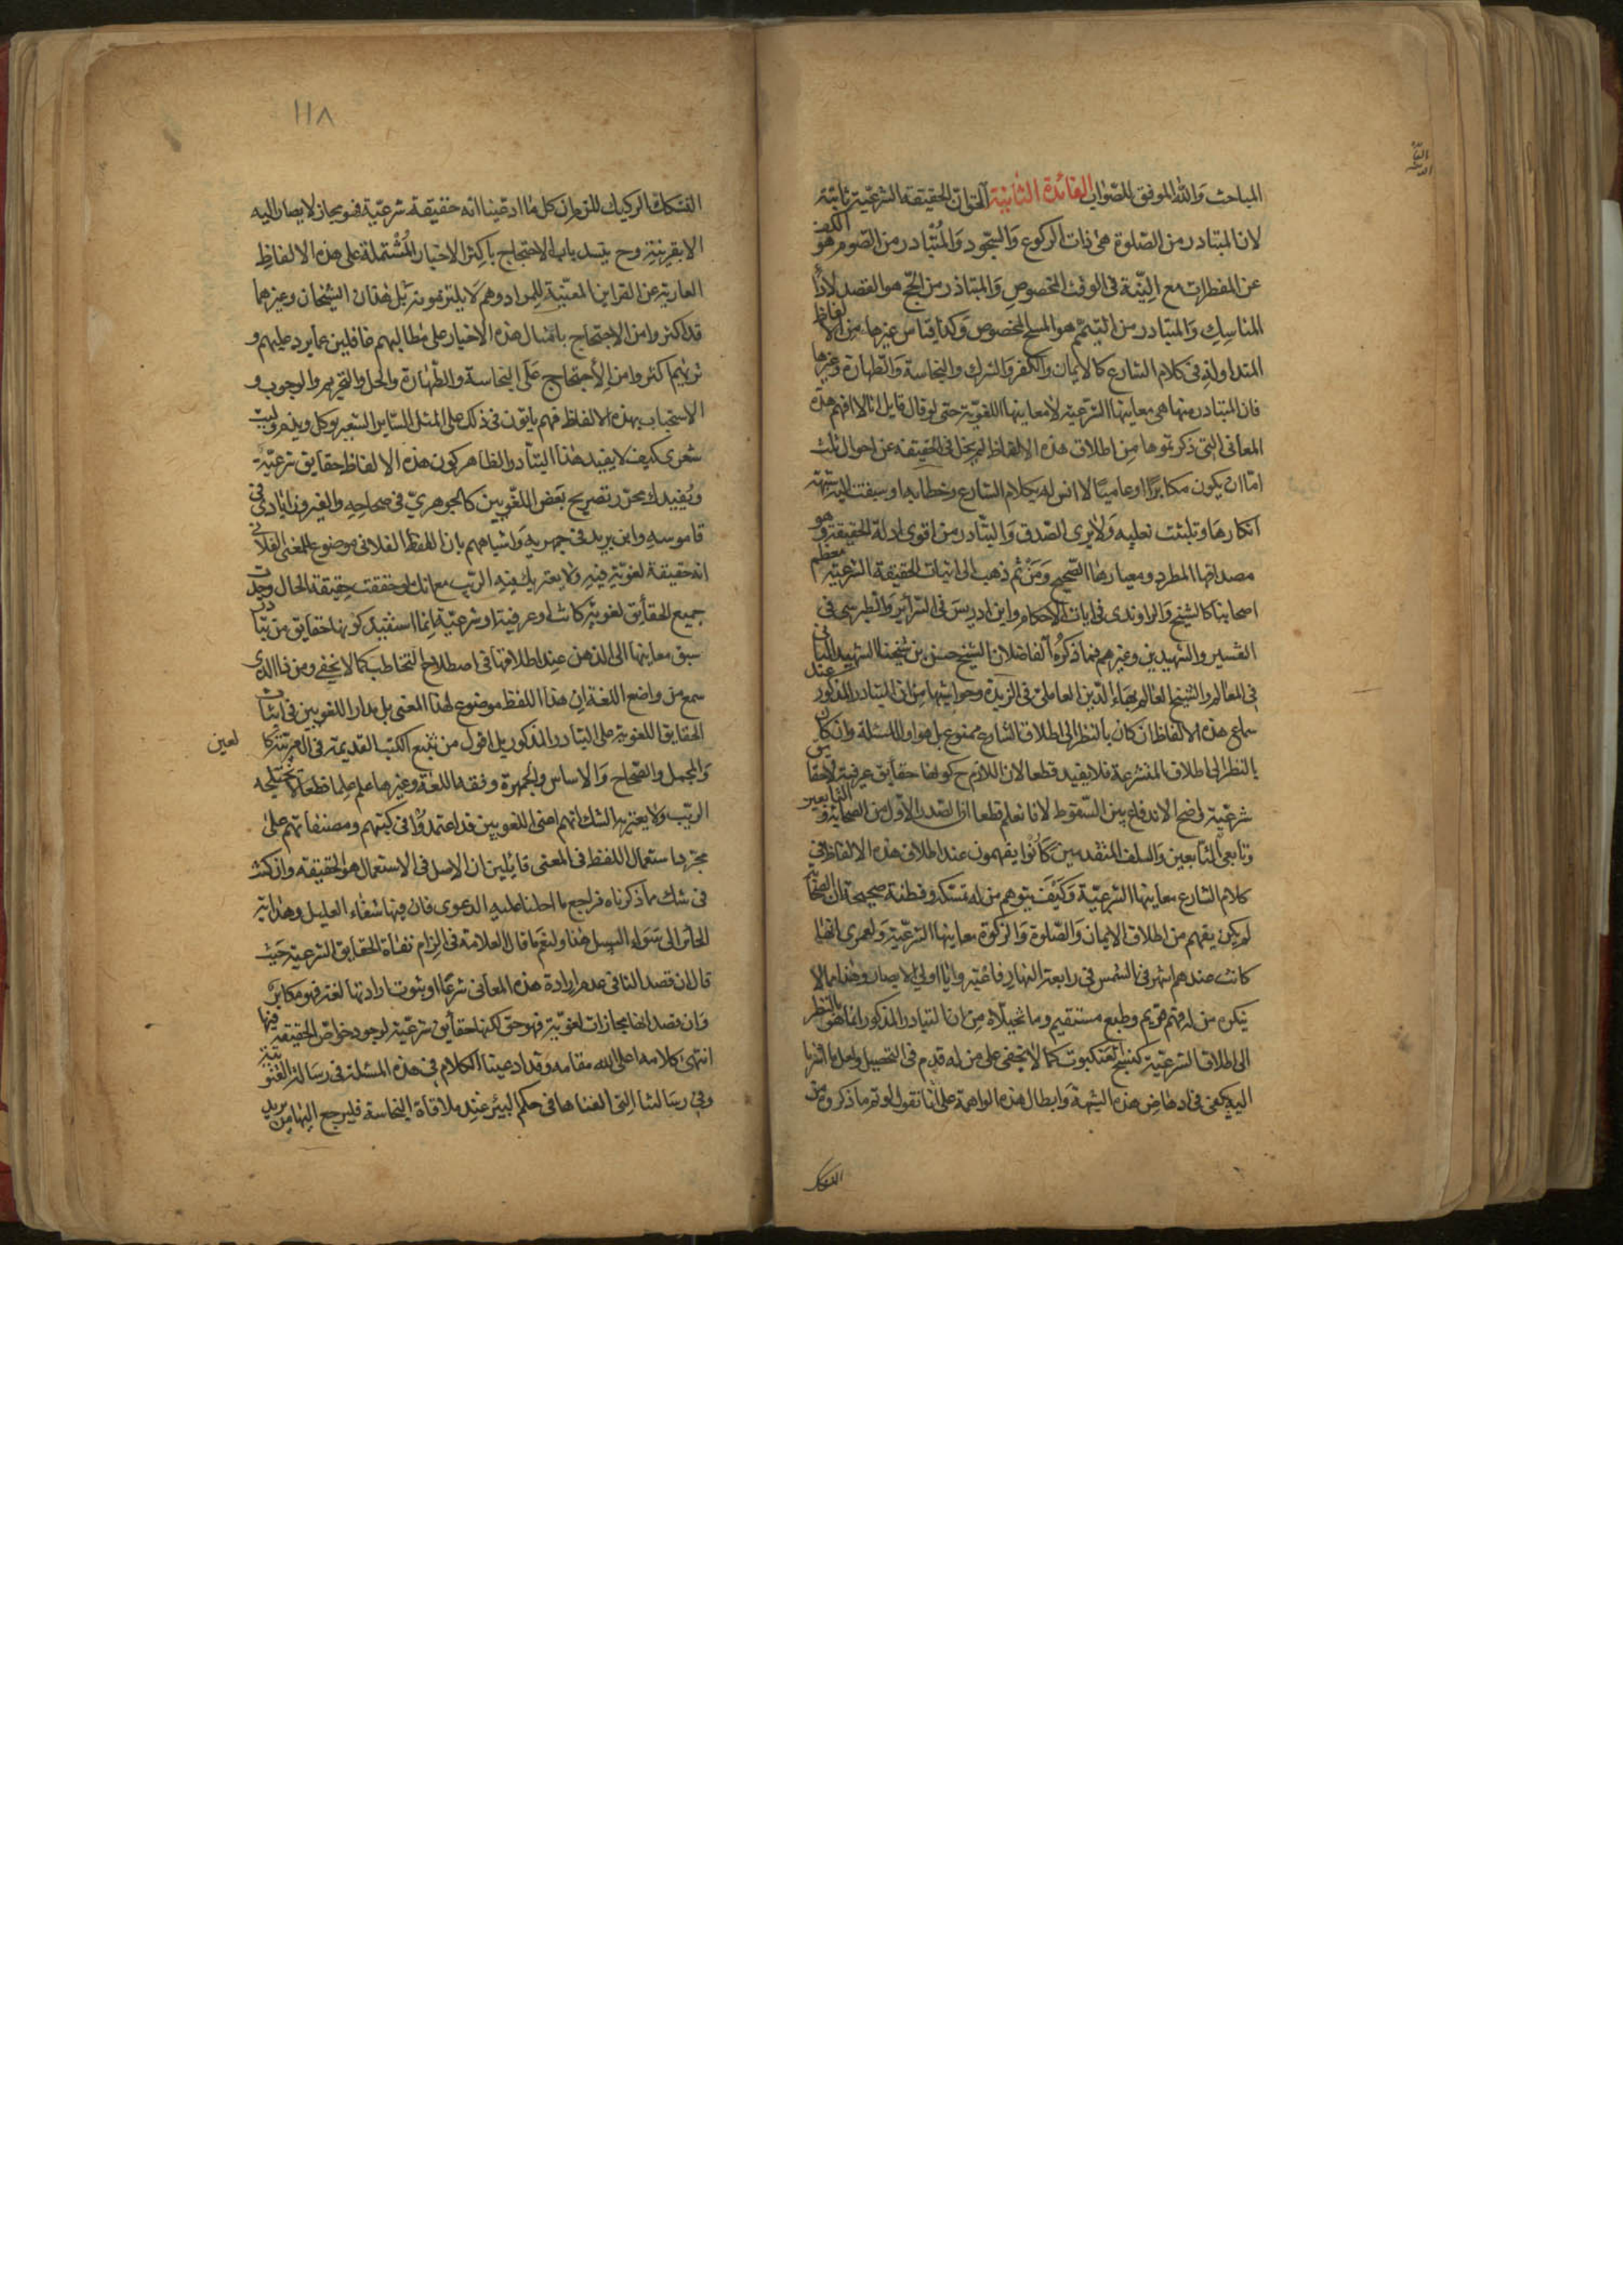 المباحث والله الموفق للصواب الفائدة الثانية الحق ان الحقيقة الشرعية ثابتة
لان المتبادر من الصلوة هى ذات الركوع والسجود والمتبادر من الصوم هو الكف
عن المفطرات مع النية فى الوقت المخصوص والمتبادر من الحج هو القصد لاداء
المناسك والمتبادر من التيمم هو المسح المخصوص وكذا يقاس غيرها من الالفاظ
المتداولة فى كلام الشارع كالايمان والكفر والشرك والنجاسة والطهارة وغيرها
فان المتبادر منها هى معاينها الشرعية لا معاينها اللغوية حتى لو قال قايل انا لا افهم هذه
المعانى التى ذكرتموها من اطلاق هذه الالفاظ لم يخل فى الحقيقة عن احوال ثلث
اما ان يكون مكابرا او عاميا لا انس له بكلام الشارع وخطابه او سبقت اليه شبهة
انكارها وتلبثت بقلبه ولا يرى الصدق والتبادر من اقوى ادلة الحقيقة وهو
مصداقها المطرد ومعيارها الصحيح ومن ثم ذهب الى اثبات الحقيقة الشرعية معظم
اصحابنا كالشيخ والراوندى فى ايات الاحكام وابن ادريس فى السرائر والطبرسى فى
التفسير والشهيدين وغيرهم فما ذكره الفاضلان الشيخ حسن بن شيخنا الشهيد الثانى
فى المعالم والشيخ العالم بهاء الدين العاملى فى الزبدة وحواشيها من ان التبادر المذكور عند
سماع هذه الالفاظ ان كان بالنظر الى اطلاق الشارع ممنوع بل هو اول المسئلة وان كان
بالنظر الى اطلاق المتشرعة فلا يفيد قطعا لان اللازم ح كونها حقايق عرفية لا حقايق
شرعية واضح الاندفاع بين السقوط لانا نعلم قطعا ان الصدر الاول من الصحابة والتابعين
وتابعى التابعين والسلف المتقدمين كانوا يفهمون عند اطلاق هذه الالفاظ فى
كلام الشارع معاينها الشرعية وكيف يتوهم من له مسكة وفطنة صحيحة ان الصحابة
لم يكن يفهم من اطلاق الايمان والصلوة والزكوة معاينها الشرعية ولعمرى انها
كانت عندهم اشهر من الشمس فى رابعة النهار فاعتبروا يا اولى الابصار وهذا مما لا
ينكره من له فهم قويم وطبع مستقيم وما تخيلاه من ان التبادر المذكور انما هو بالنظر
الى اطلاق الشرعية كنسج العنكبوت كما لا يخفى على من له قدم فى التحصيل ولعل ما اشرنا
اليه يكفى فى ادحاض هذه الشبهة وابطال هذه الواهمة على انا نقول لو تم ما ذكروه من
التفكك
١١٨
التفكك الركيك للزم ان كل ما ادعينا انه حقيقة شرعية فهو مجاز لا يصار اليه
الا بقرينة وح ينسد باب الاحتجاج باكثر الاخبار المشتملة على هذه الالفاظ
العارية عن القراين المعينة للمراد وهم لا يلتزمونه بل هذان الشيخان وغيرهما
قد اكثروا من الاحتجاج بامثال هذه الاخبار على مطالبهم غافلين عما يرد عليهم و
تريهم اكثروا من الاحتجاج على النجاسة والطهارة والحل والتحريم والوجوب و
الاستحباب بهذه الالفاظ فهم ياتون فى ذلك على المثل الساير الشعير يوكل ويذم وليت
شعرى كيف لا يفيد هذا التبادر الظاهر كون هذه الالفاظ حقايق شرعية
ويفيدك مجرد تصريح بعض اللغويين كالجوهرى فى صحاحه والفيروزابادى فى
قاموسه وابن دريد فى جمهرية واشباههم بان اللفظ الفلانى موضوع للمعنى الفلانى
انه حقيقة لغوية فيه ولا يعتريك فيه الريب مع انك لو حققت حقيقة الحال وجدت
جميع الحقايق لغوية كانت او عرفية او شرعية انما استفيد كونها حقايق من تبادر
سبق معاينها الى الذهن عند اطلاقها فى اصطلاح التخاطب كما لا يخفى ومن ذا الذى
سمع من واضع اللغة ان هذا اللفظ موضوع لهذا المعنى بل مدار اللغويين فى اثبات
الحقايق اللغوية على التبادر المذكور بل اقول من تتبع الكتب القديمة فى العربية كالعين
لعين
والمجمل والصحاح والاساس والجمهرة وفقه اللغة وغيرها علم علما قطعا لا يختلجه
الريب ولا يعتريه الشك انهم اعنى اللغويين قد اعتمدوا فى كتبهم ومصنفاتهم على
مجرد استعمال اللفظ فى المعنى قايلين ان الاصل فى الاستعمال هو الحقيقة وان كنت
فى شك مما ذكرناه فراجع ما احلنا عليه الدعوى فان فيها شفاء العليل وهداية
الحائر الى سواء السبيل هذا ولنعم ما قال العلامة فى الزام نفاة الحقايق الشرعية حيث
قال ان قصد النافى عدم ارادة هذه المعانى شرعا او ثبوت ارادتها لغة فهو مكابر
وان قصد انها مجازات لغوية فهو حق لكنها حقايق شرعية لوجود خواص الحقيقة فيها
انتهى كلامه اعلى الله مقامه وقد اوعبنا الكلام فى هذه المسئلة فى رسالة القنوتية
وفى رسالتنا التى الفناها فى حكم البئر عند ملاقاة النجاسة فليرجع اليها من يريد